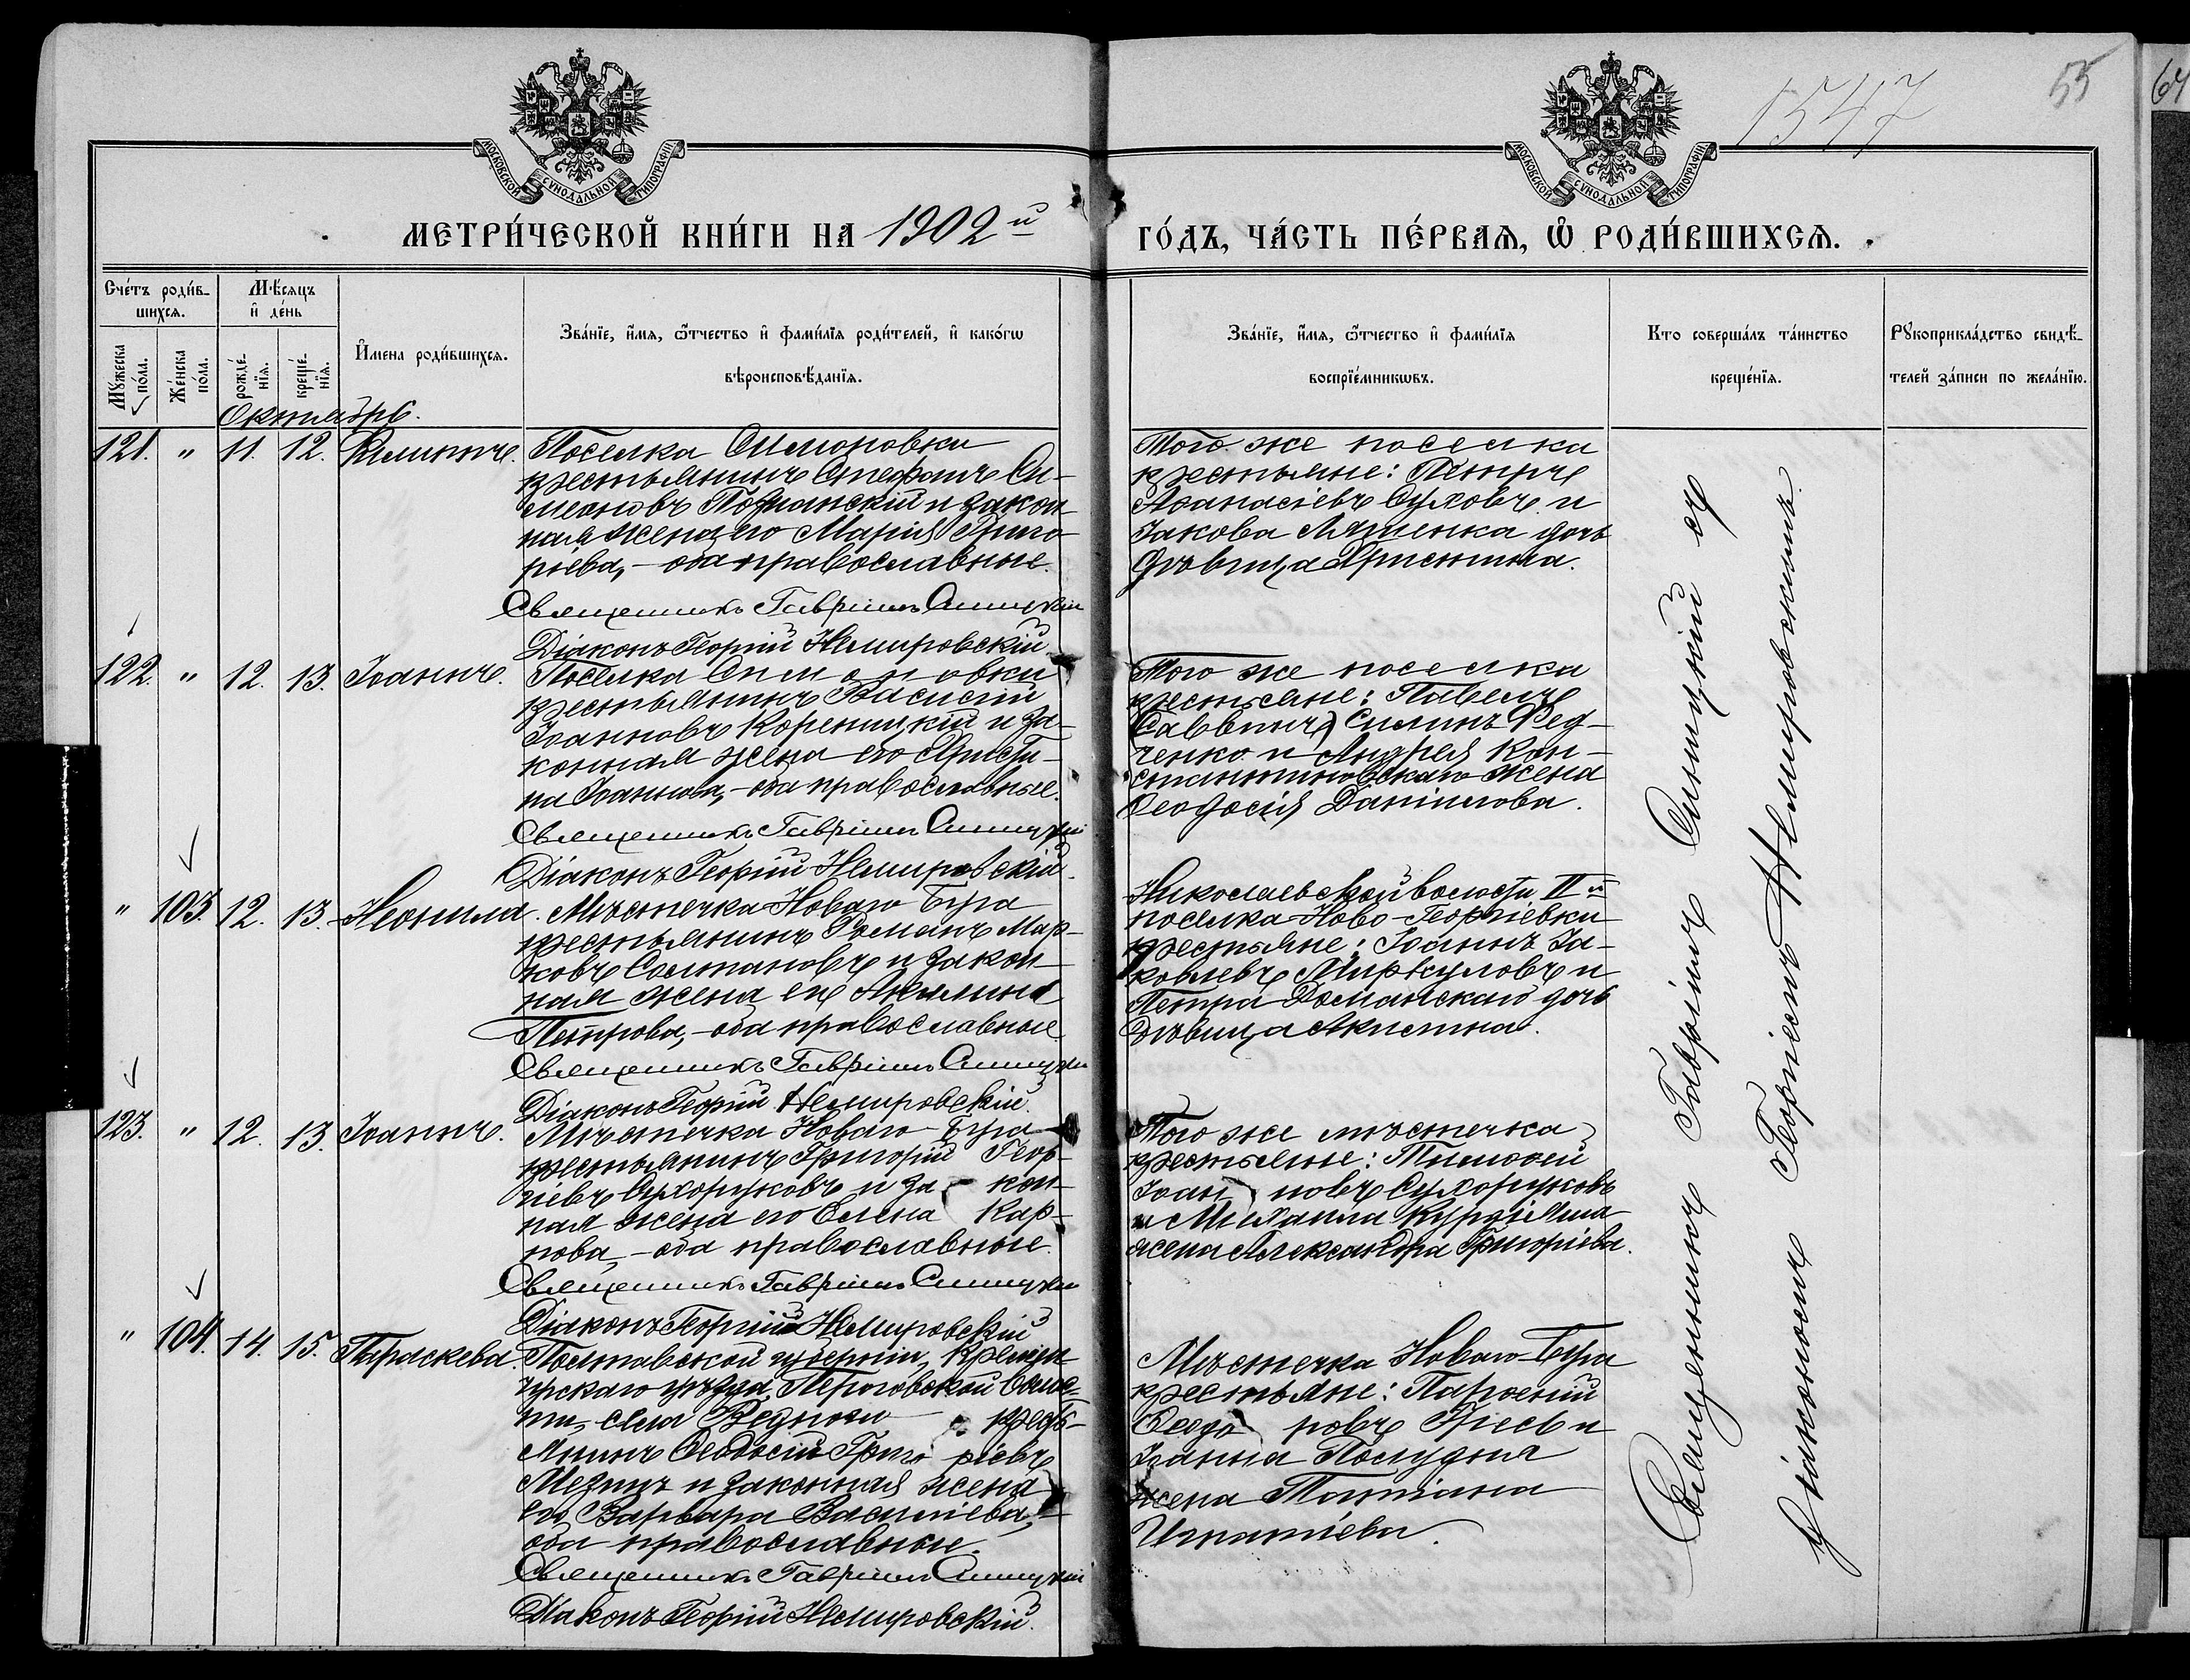 1547
55
64
МОСКОВСКОЙ СѴНОДАЛЬНОЙ ТИПОГРАФІИ
МОСКОВСКОЙ СѴНОДАЛЬНОЙ ТИПОГРАФІИ
МЕТРИ́ЧЕСКОЙ КНИ́ГИ НА 1902й ГО́ДЪ, ЧА́СТЬ ПЕ́РВАЯ, Ѡ҆ РОДИ́ВШИХСЯ.
Сче́тъ роди́в-
шихся.
Мѣсяцъ
и҆ де́нь
Мꙋжеска по́ла.
Же́нска по́ла.
рожде́-
нїѧ.
креще́-
нїѧ.
И҆мена роди́вшихся.
Зва́нїе, и҆́мѧ, ѻ҆́тчество и҆ фами́лїѧ роди́телей, и҆ како́гѡ
вѣроисповѣ́данїѧ.
Зва́нїе, и҆́мѧ, ѻ҆́тчество и҆ фами́лїѧ
воспрїе́мникѡвъ.
Кто соверша́лъ та́инство
креще́нїѧ.
Рꙋкоприкла́дство свидѣ́-
телей за́писи по жела́нїю.
Октябрь.
121. " 11. 12.
Поселка Симоновки
крестьянинъ Стефанъ Си-
меоновъ и закон-
ная жена его Марія Григо-
рьева, – оба православные.
Священникъ Гавріилъ Синицкій
Діаконъ Георгій Немировскій
Того же поселка
крестьяне: Петръ
Аѳанасіевъ Суховъ и
Іакова Ляшенка дочь
дѣвица Христина.
122. " 12. 13. Іоаннъ.
Поселка Симоновки
крестьянинъ Василій
Іоанновъ Кореницкій и за-
конная жена его Христи-
на Іоаннова, – оба православные.
Священникъ Гавріилъ Синицкій
Діаконъ Георгій Немировскій.
Того же поселка
крестьяне: Павелъ
(Саввичъ) Силинъ Ред-
ченко и Андрея Кон-
стантиновскаго жена
Ѳеодосія Даніилова.
" 103. 12. 13. Неонила.
Мѣстечка Новаго Буга
крестьянинъ Романъ Мар-
ковъ Солтановъ и закон-
ная жена его Акилина
Петрова, – оба православные
Священникъ Гавріилъ Синицкій
Діаконъ Георгій Немировскій.
Николаевской волости IIй
поселка Ново-Георгіевки
крестьяне: Іоаннъ Іа-
ковлевъ Миркуловъ и
Петра Доманскаго дочь
дѣвица Акилина.
123. " 12. 13. Іоаннъ.
Мѣстечка Новаго Буга
крестьянинъ Григорій Геор-
гіевъ Сухоруковъ и за- кон-
ная жена его Елена Кар-
пова, – оба православные.
Священникъ Гавріилъ Синицкій
Діаконъ Георгій Немировскій
Того же мѣстечка
крестьяне: Тимоѳей
Іоан новъ Сухоруковъ
и Михаила Курдіяша
жена Александра Григоріева.
" 104. 14. 15. Параскева.
Полтавской губерніи, Кремен-
чугскаго уѣзда, Пироговской волос-
ти, села кресть-
янинъ Ѳеодосій Григо ріевъ
Мезинъ и законная жена
его Варвара Василіева, –
оба православные.
Священникъ Гавріилъ Синицкій
Діаконъ Георгій Немировскій.
Мѣстечка Новаго-Буга
крестьяне: Парѳеній
Ѳеодо ровъ и
Іоанна Полудня
жена Татіана
Игнатіева.
Священникъ Гавріилъ Синицкій съ
діакономъ Георгіемъ Немировскимъ.